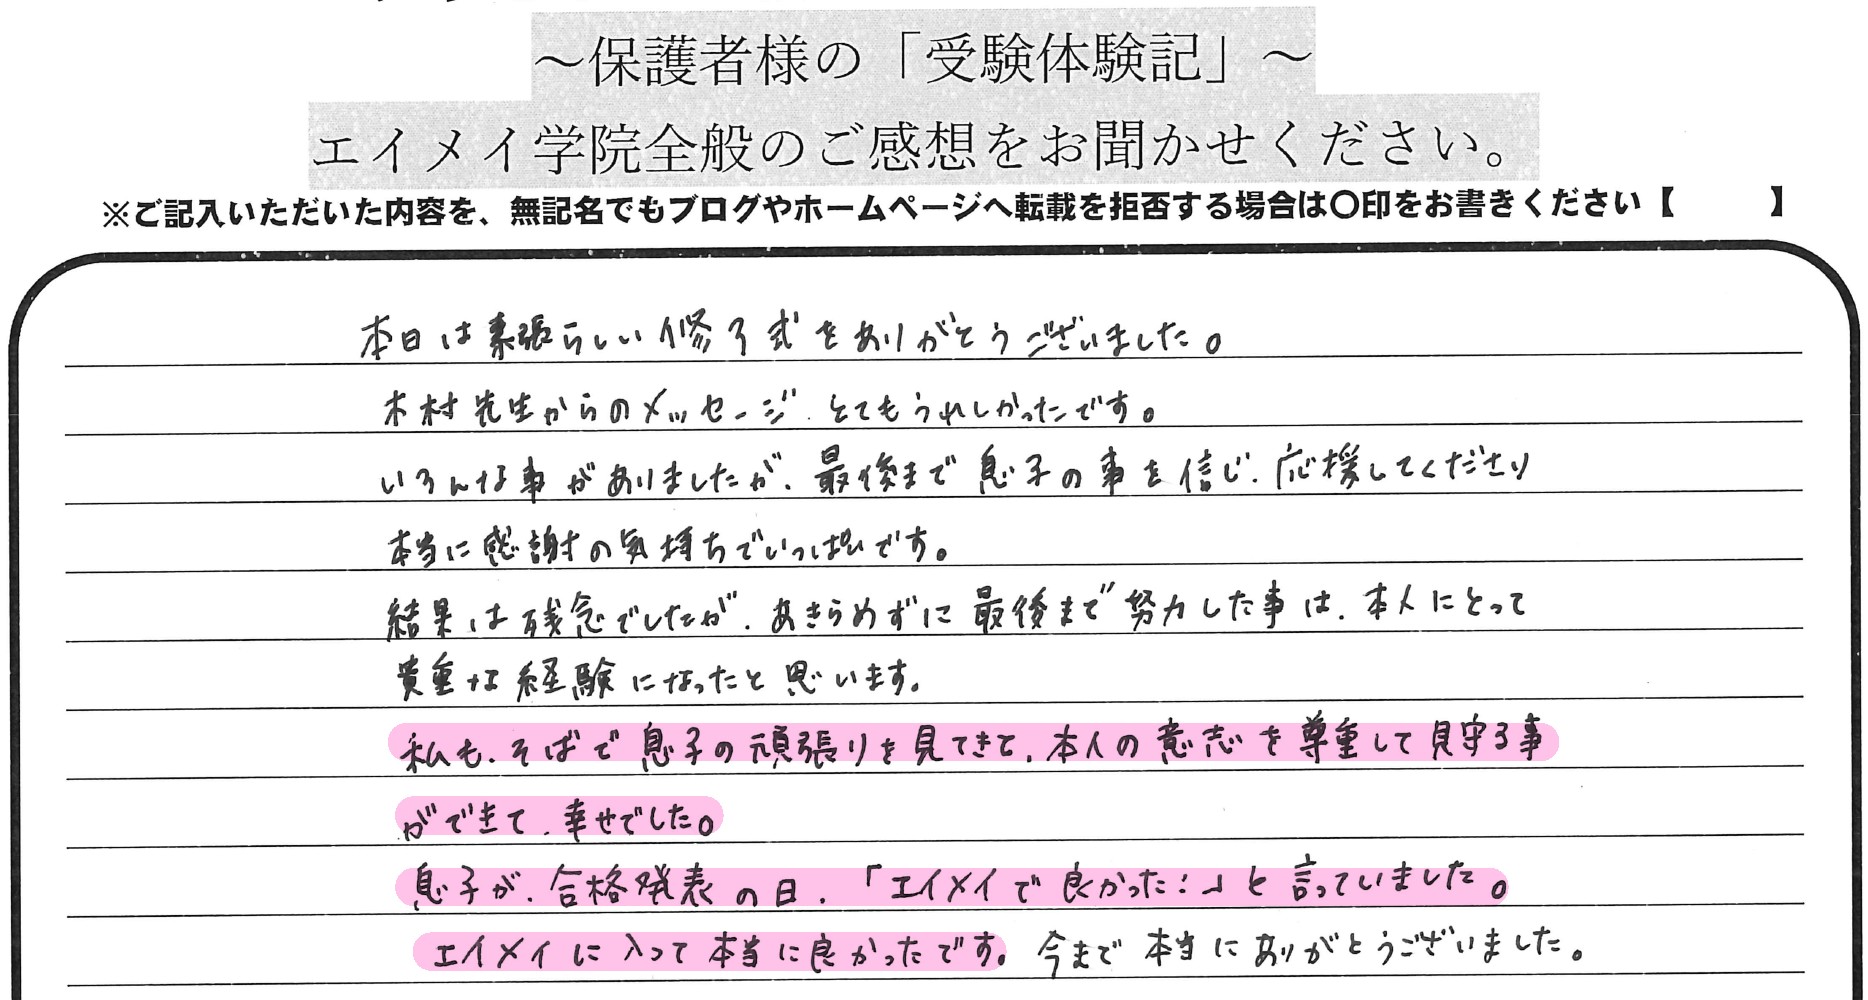 ～保護者様の「受験体験記」～
エイメイ学院全般のご感想をお聞かせください。
※ご記入いただいた内容を、無記名でもブログやホームページへ転載を拒否する場合は〇印をお書きください【　　　】
本日は素張らしい修了式をありがとうございました。
木村先生からのメッセージ、とてもうれしかったです。
いろんな事がありましたが、最後まで息子の事を信じ、応援してくださり
本当に感謝の気持ちでいっぱいです。
結果は残念でしたが、あきらめずに最後まで努力した事は、本人にとって
貴重な経験になったと思います。
私も、そばで息子の頑張りを見てきて、本人の意志を尊重して見守る事
ができて、幸せでした。
息子が、合格発表の日、「エイメイで良かった！」と言っていました。
エイメイに入って本当に良かったです。今まで本当にありがとうございました。